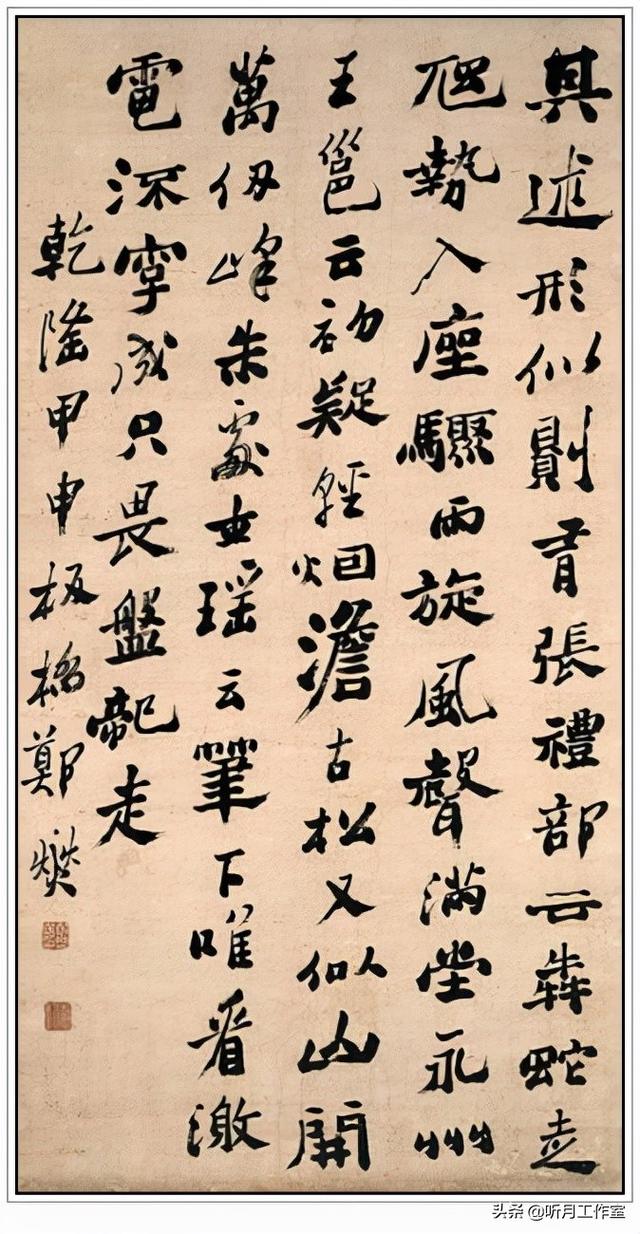 其述形似則有張禮部云犇蛇走
虺勢入座驟雨旋風聲滿堂永州
王邕云初疑輕烟澹古松又似山開
萬仞峰朱處女瑶云筆下唯看激
電流字成只畏盤龍走
乾隆甲申板橋鄭燮
头条 @听月工作室